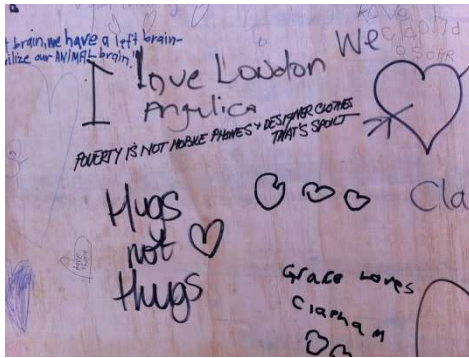 t brain, we have a left brain-
ilize our ANIMAL brain."
I love London
Angelica
We
POVERTY IS NOT MOBILE PHONES & DESIGNER CLOTHES
THAT'S SPOILT
Cla
Hugs
not
Thugs
Grace Loves
Clapham